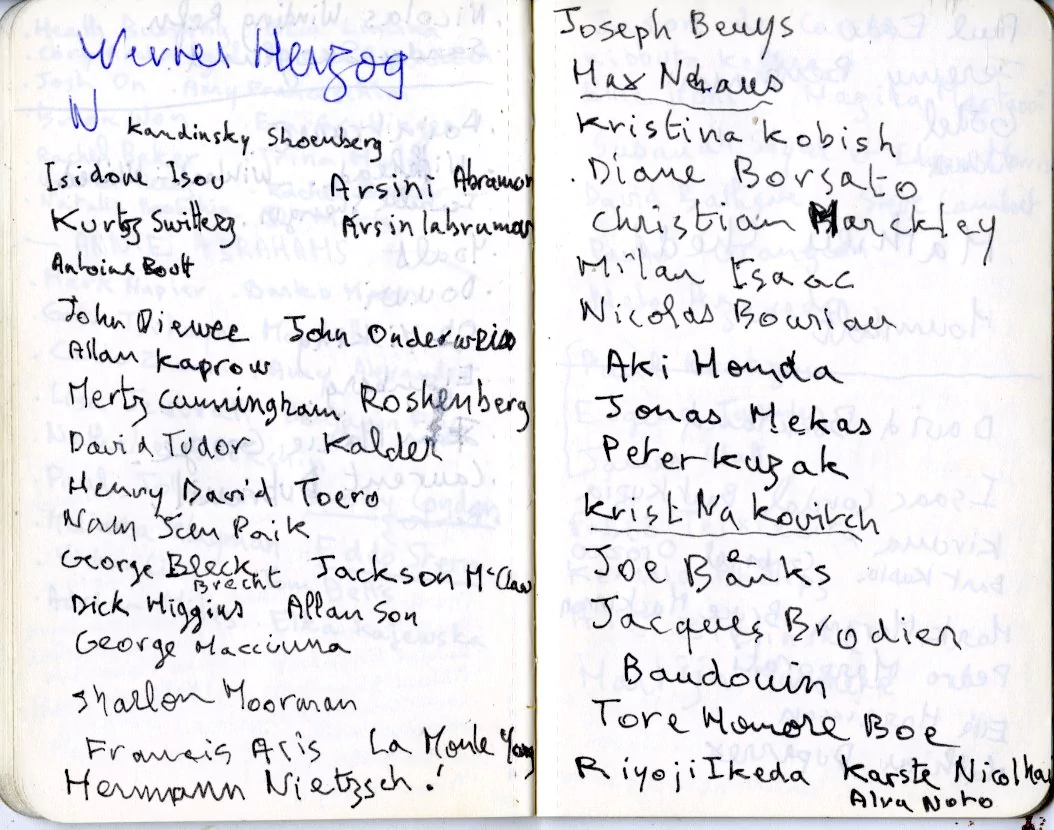 Werner Herzog
W Kandinsky Shoenberg
Isidore Isou Arsini Abramov
Kurtz Switterz Arsinlabramav
Antoine Boutt
John Diewee John Onderweiss
Allan Kaprow
Mertz Cunningham Roshenberg
David Tudor Kalder
Henry David Toero
Nam Jeun Paik
George Bleck Jackson McClaw
Brecht
Dick Higgins Allan Son
George Macciuna
Sharlon Moorman
Francis Alis La Monte Yong
Hermann Nietzsch!
Joseph Beuys
Max Nehaus
Kristina Kobish
. Diane Borsato
Christian Marckley
Milan Isaac
Nicolas Bouriau
Aki Homda
Jonas Mekas
Peter Kuzak
Krist Na kovitch
Joe Banks
Jacques Brodien
Baudouin
Tore Honore Boe
Riyoji Ikeda Karste Nicolhai
Alva Noto